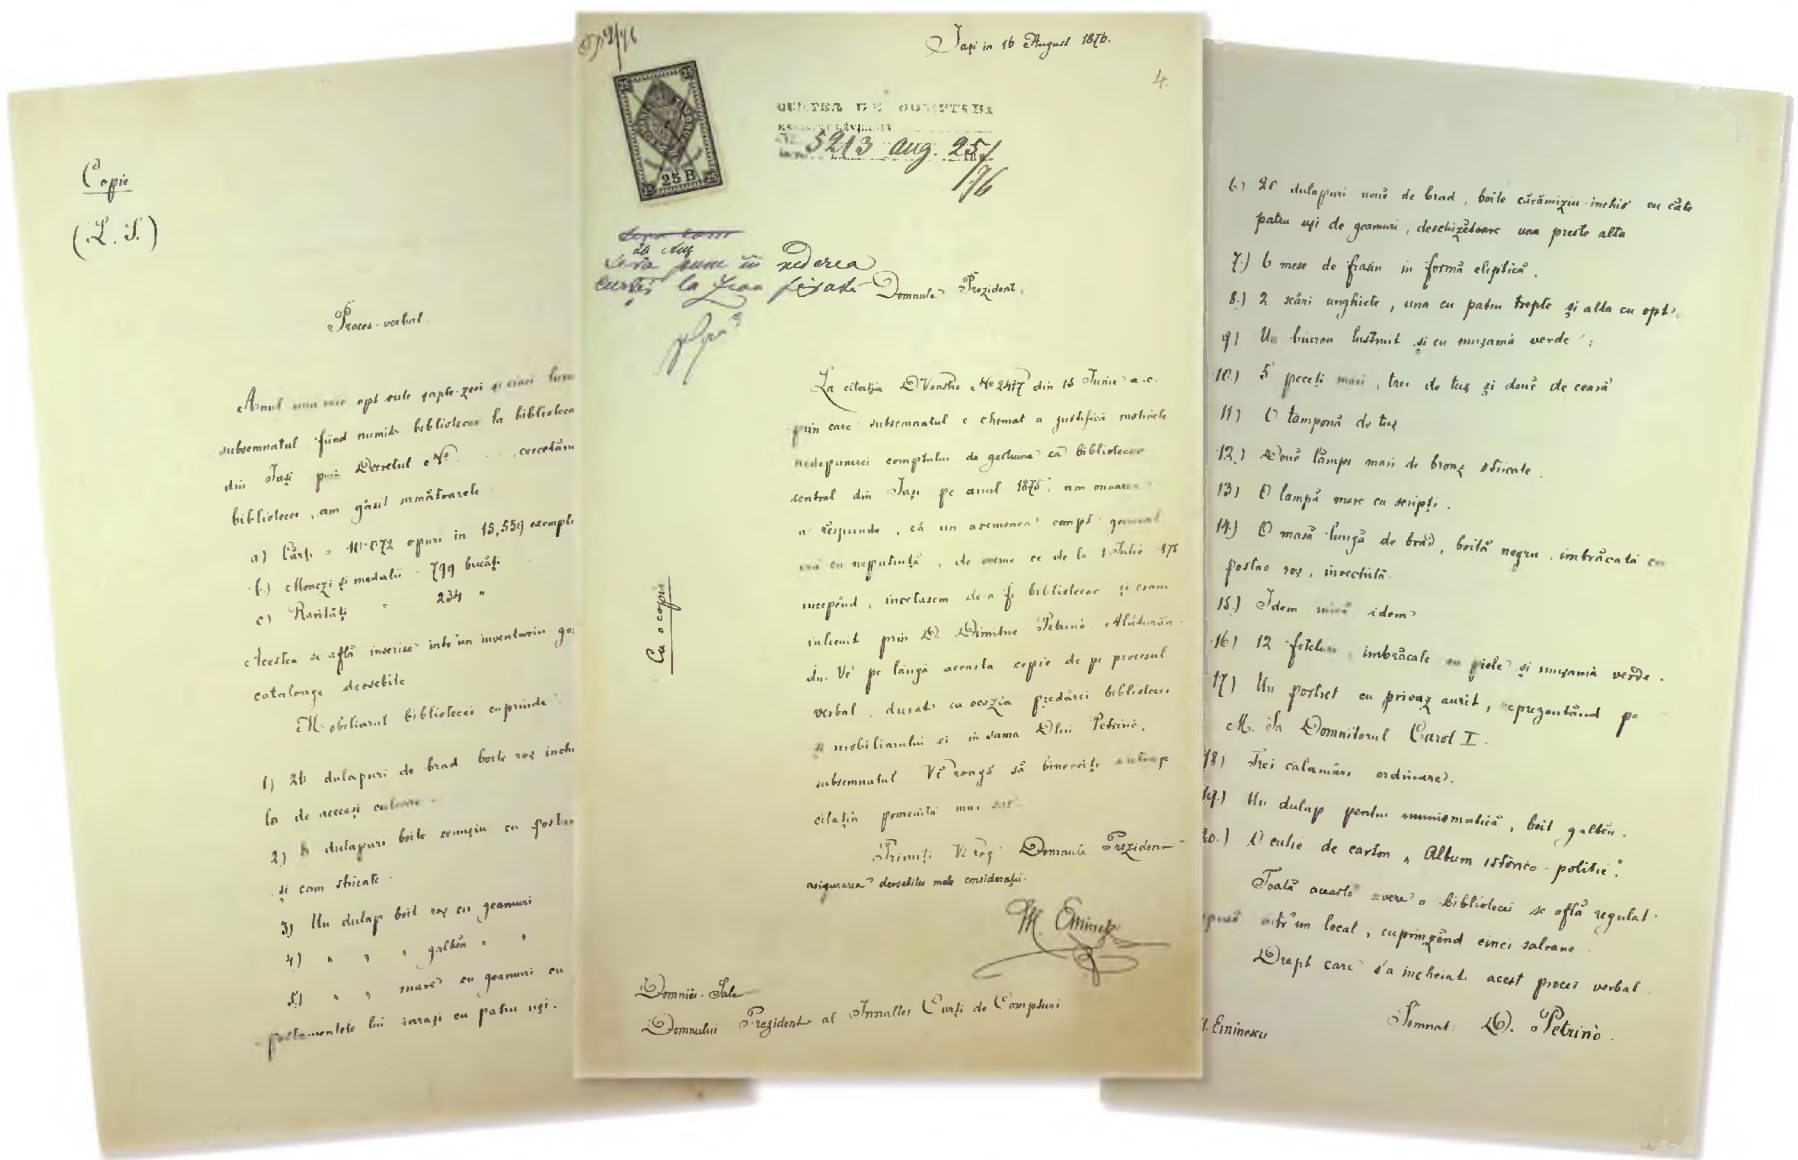 Copie
(L. S.)
Proces-verbal.
Anul una mie opt sute șapte-zeci și cinci
subsemnatul fiind numit bibliotecar la biblioteca
din Iași prin Decretul No cercetând
bibliotecei, am găsit următoarele:
a) Cărți = 10.072 opuri in 15,559 exempl
b.) Monezi și medalii 799 bucăți
c) Rarități " 234 "
Acestea se află inscrise intr'un inventariu
cataloage deosebite
Mobiliarul bibliotecei cuprinde:
1) 26 dulapuri de brad boite roș inchis
lor de aceeași culoare.
2) dulapuri boite cenușiu cu
și cam stricate.
3) Un dulap boit roș cu geamuri
4) " " " galbĕn " "
5.) " " mare cu geamuri cu
lui iarași cu patru uși.
Iași in 16 August 1876.
4.
CURTEA DE COMPTURI
5213 aug. 25/
176
25 B
26 Aug
Se va pune in vederea
curței la ziua fixată
Domnule Prezident,
La citația DVoastre No 2417 din 15 Iunie a.c.
prin care subsemnatul e chemat a justifica motivele
nedepunerei comptului de gestiune ca bibliotecar
central din Iași pe anul 1875, am onoarea
a respunde, că un asemenea compt general
era cu neputință, de vreme ce de la 1 Iulie 875
incepĕnd, incetasem de-a fi bibliotecar și eram
inlocuit prin D. Dimitrie Petrino. Alăturân-
du-Vĕ pe lângă aceasta copie de pe procesul
verbal, dresat cu ocazia predărei bibliotecei
și mobiliarului ei in sama Dlui Petrino,
subsemnatul Vĕ roagă să binevoiți
citația pomenită mai sus.
Primiți Vĕ rog Domnule Prezident
asigurarea deosebitei mele considerații.
M. Eminescu
Cu o copie
Domniei-Sale
Domnului Prezident al Innaltei Curți de Compturi
6) 20 dulapuri nouĕ de brad, boite cărămiziu-inchis cu câte
patru uși de geamuri, deschizĕtoare una preste alta
7.) 6 mese de frasin in formă eliptică.
8.) 2 scări unghiete, una cu patru trepte și alta cu opt.
9) Un biurou lustruit și cu mușama verde;
10.) 5 peceți mari, trei de tuș și douĕ de ceară
11) O tamponă de tuș
12.) Douĕ lămpi mari de bronz stricate.
13) O lampă mare cu scripți.
14.) O masă lungă de brad, boită negru, imbrăcată cu
postav roș, invechită.
15.) Idem mică idem
16.) 12 imbrăcate cu piele și mușama verde.
17) Un portret cu privaz aurit, reprezentând pe
M. Sa Domnitorul Carol I.
18) Trei calamări ordinare.
19.) Un dulap pentru numismatică, boit galbĕn.
20.) O cutie de carton „Album istorico-politic".
Toată aceasta avere a bibliotecei se află regulat
intr'un local, cuprinzĕnd cinci saloane.
Drept care s'a incheiat acest proces verbal.
Eminescu Semnat: D. Petrino.